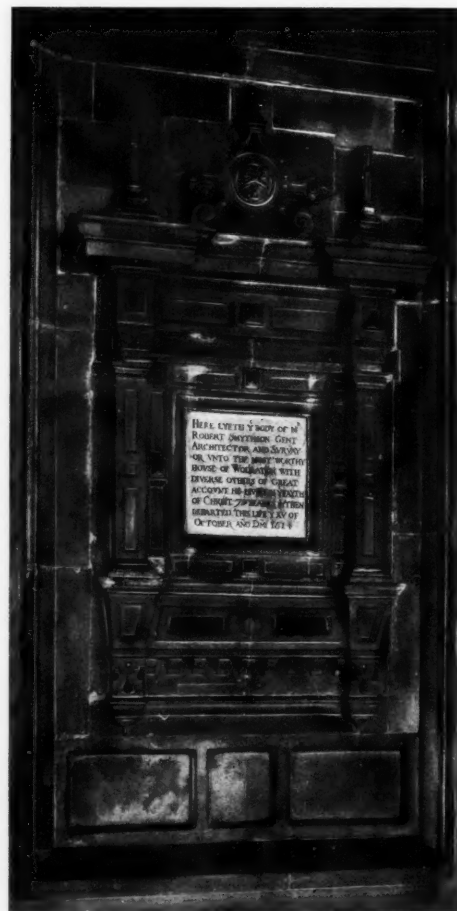 HERE LYETH Y BODY OF Mr
ROBERT SMYTHSON GENT
ARCHITECTOR AND SVRVAY
OR VNTO THE MOST WORTHY
HOVSE OF WOLLATON WITH
DIVERSE OTHERS OF GREAT
ACCOVNT HE LIVED IN Y FAYTH
OF CHRIST YEARES & THEN
DEPARTED THIS LIFE Y XV OF
OCTOBER ANO DNI 1614